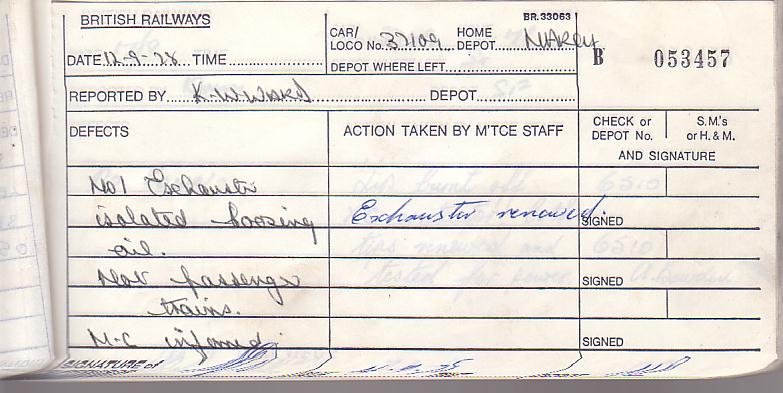 BRITISH RAILWAYS
BR.33063
CAR/ LOCO No. 37109 HOME DEPOT MARCH
DATE 12-9-78 TIME
DEPOT WHERE LEFT
B 053457
REPORTED BY K.W.WARD DEPOT
DEFECTS
ACTION TAKEN BY M'TCE STAFF
CHECK or DEPOT No.
S.M's or H. & M.
AND SIGNATURE
No1 Exhauster
isolated loosing
Exhauster renewed.
SIGNED
oil.
near passenger
SIGNED
trains.
M-C informed.
SIGNED
SIGNATURE of